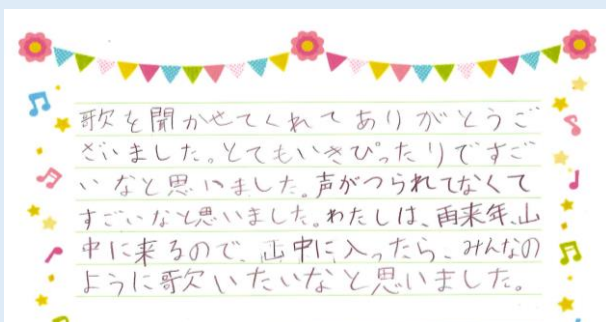 歌を聞かせてくれてありがとうご
ざいました。とてもいきぴったりですご
いなと思いました。声がつられてなくて
すごいなと思いました。わたしは、再来年、山
中に来るので、山中に入ったら、みんなの
ように歌いたいなと思いました。